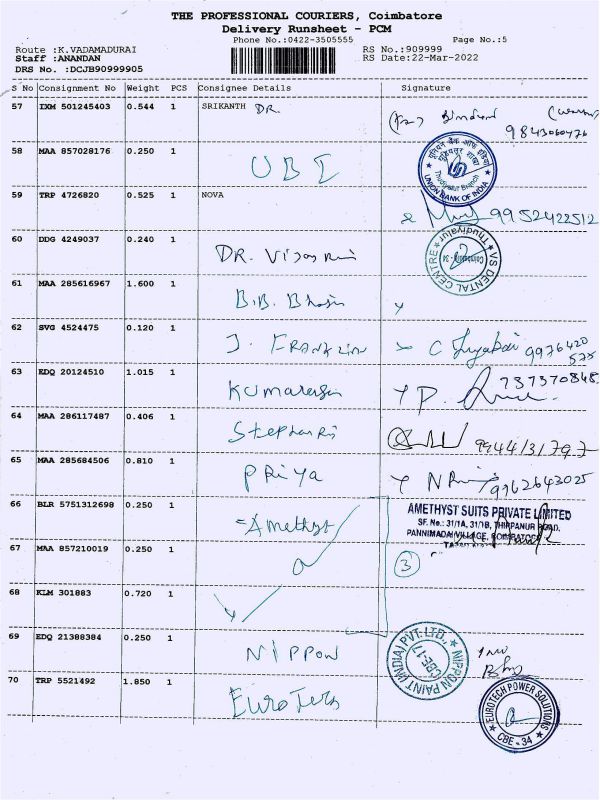 THE PROFESSIONAL COURIERS, Coimbatore
Delivery Runsheet - PCM
Phone No.:0422-3505555 Page No.:5
Route :K.VADAMADURAI RS No.:909999
Staff :ANANDAN RS Date:22-Mar-2022
DRS No. :DCJB90999905
S No Consignment No Weight PCS Consignee Details Signature
57 IXM 501245403 0.544 1 SRIKANTH DR.
9843060476
58 MAA 857028176 0.250 1 UBI
यूनियन बैंक ऑफ इंडिया
Thudiyalur Branch
UNION BANK OF INDIA
59 TRP 4726820 0.525 1 NOVA 9952422512
60 DDG 4249037 0.240 1 DR.
VS DENTAL CENTRE
Thudiyalur
Coimbatore - 34
61 MAA 285616967 1.600 1 B.B.
62 SVG 4524475 0.120 1 J. FRANKLIN 9976420
575
63 EDQ 20124510 1.015 1 P. 737370848
64 MAA 286117487 0.406 1
65 MAA 285684506 0.810 1 PRIYA 9962643025
66 BLR 5751312698 0.250 1 Amethyst
AMETHYST SUITS PRIVATE LIMITED
SF. No.: 31/1A, 31/1B, THIPPANUR ROAD,
PANNIMADAI VILLAGE, COIMBATORE
67 MAA 857210019 0.250 1 3
68 KLM 301883 0.720 1
69 EDQ 21388384 0.250 1 NIPPON
NIPPON PAINT (INDIA) PVT. LTD.,
CBE-17
70 TRP 5521492 1.850 1
EUROTECH POWER SOLUTIONS
CBE - 34